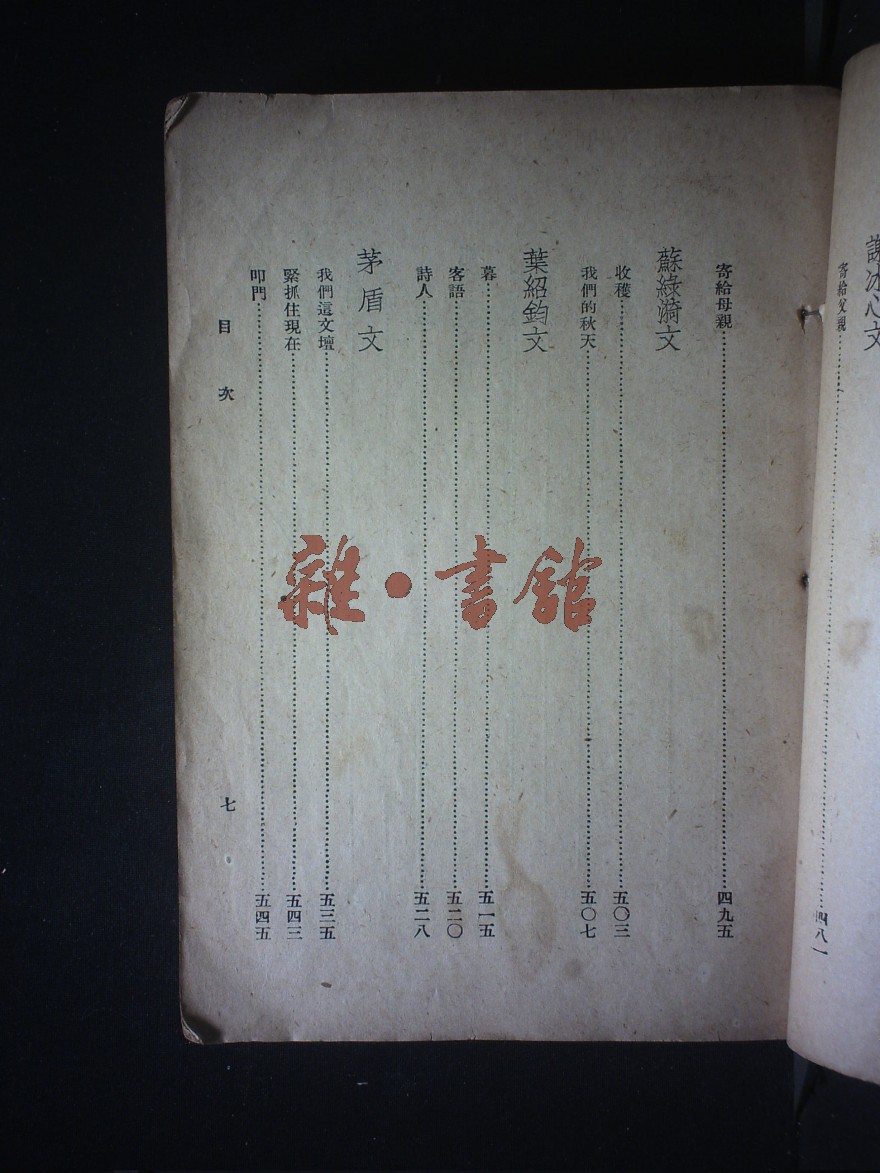 謝冰心文
寄給父親……四八一
寄給母親……四九五
蘇綠漪文
收穫……五〇三
我們的秋天……五〇七
葉紹鈞文
暮……五一五
客語……五二〇
詩人……五二八
茅盾文
我們這文壇……五三五
緊抓住現在……五四三
叩門……五四五
目次
七
雜·書館